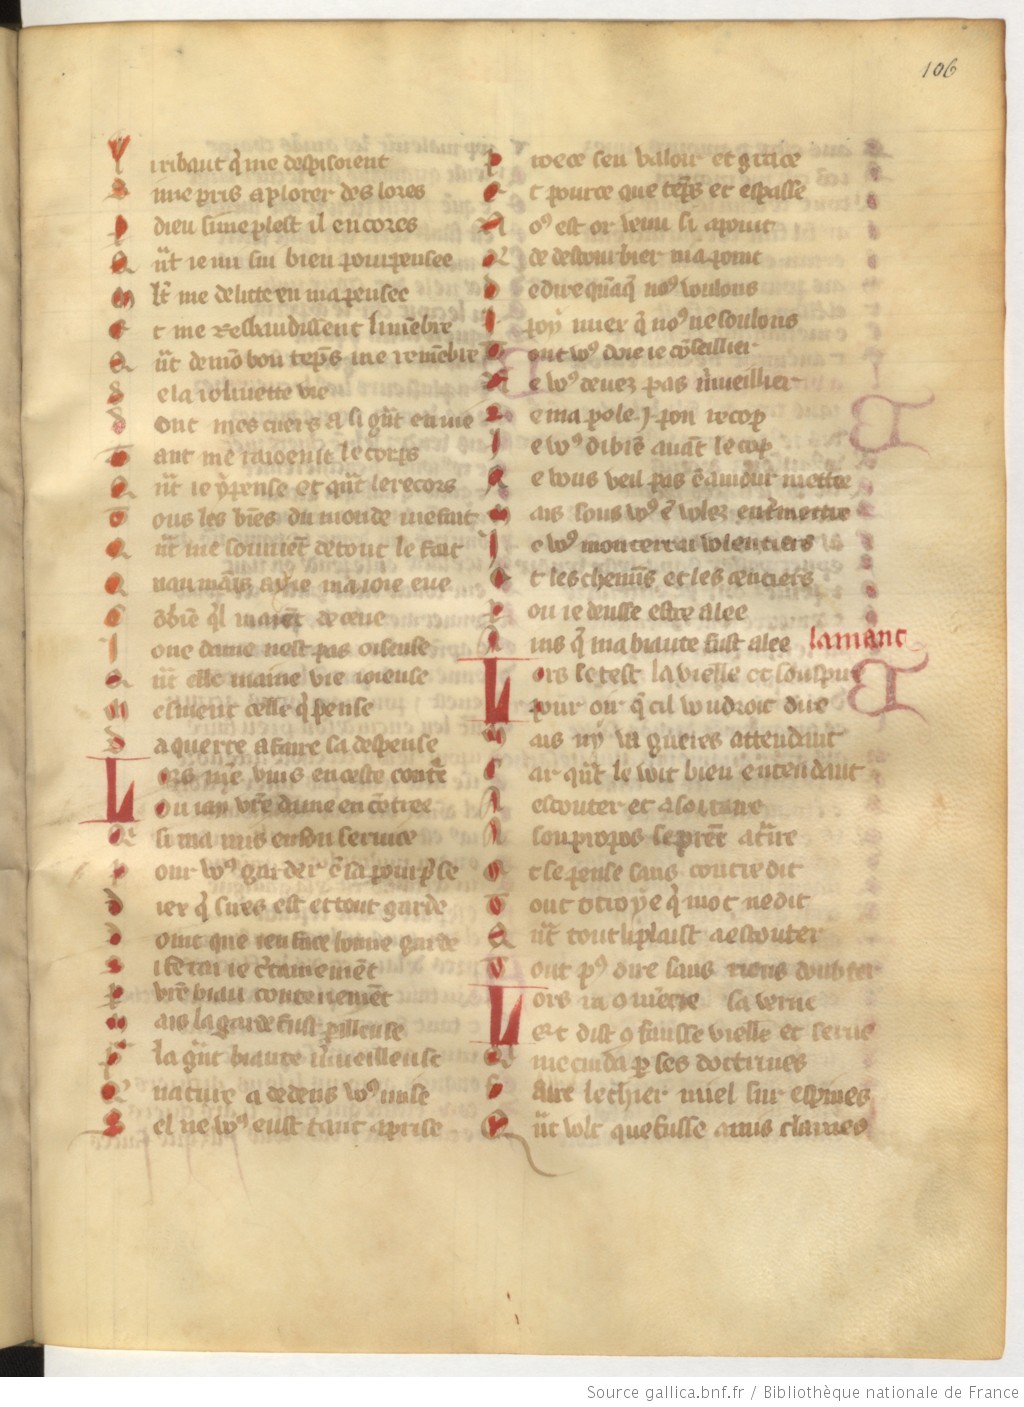 106
Li ribaut q̃ me despisoient
Si me pris a plorer des lores
Par dieu si me plest il encores
Q̃nt ie mi sui bien pourpensee
Mlt̃ me delitte en ma pensee
Et me resbaudissent li mẽbre
Q̃nt de mõ bon tẽps me remẽbre
De la iolivette vie
Dont mes cuers a si grãt envie
Tant me iovenist le corps
Q̃nt ie y pense et q̃nt le recors
Tous les biẽs du monde me fait
Q̃nt me souviẽt de tout le fait
Q̃ au mains ay ie ma ioie eue
Cõbiẽ q̃l maiẽt deceue
Ione dame nest pas oiseuse
Q̃nt elle maine vie ioieuse
Mesment celle q̃ pense
Da querre a faire sa despense
Lors mẽ vins en ceste contree
Ou iay vr̃e dame encõtree
Qui ma mis en son service
Pour vꝰ garder ẽ sa pourprise
Diex q̃ sires est et tout garde
Doint que ien face bonne garde
Si ferai ie c̃tainemẽt
Par vr̃e biau contenemẽt
Mais la garde fust perilleuse
Por la grãt biaute m̃veilleuse
Que nature a dedens vꝰ mise
Sel ne vꝰ eust tant aprise
Proece sen valour et grace
Et pource que tẽps et espasse
Noꝰ est or venu si a point
Que de destourbier na point
De dire q̃nq̃ noꝰ voulons
I poy mier q̃ noꝰ ne soulons
Tout vꝰ doie ie cõseillier
Ne vꝰ devez pas m̃veillier
Se ma pole .j. pou recop
Ie vꝰ di biẽ avãt le cop
Ne vous veil pas ẽ amour mettre
Mais sous vꝰ ẽ volez entremettre
Ie vꝰ monterrai volentiers
Et les chemĩs et les centiers
Par ou ie deusse estre alee
Ains q̃ ma biaute fust alee
lamant
Lors se test la vielle et souspire
Pour oir q̃ cil voudroit dire
Mais ny va gueres attendant
Car q̃nt le voit bien entendant
A escouter et a soi taire
A son propos se prẽt a t̃ire
Et se pense sans contredit
Tout otroye q̃ mot ne dit
Q̃nt tout li plaist a escouter
Tout pꝰ dire sans riens doubter
Lors
Et dist
me cuida p ses doctrines
Faire lechier miel sur espines
Q̃nt volt que fusse amis clames
Source gallica.bnf.fr / Bibliothèque nationale de France